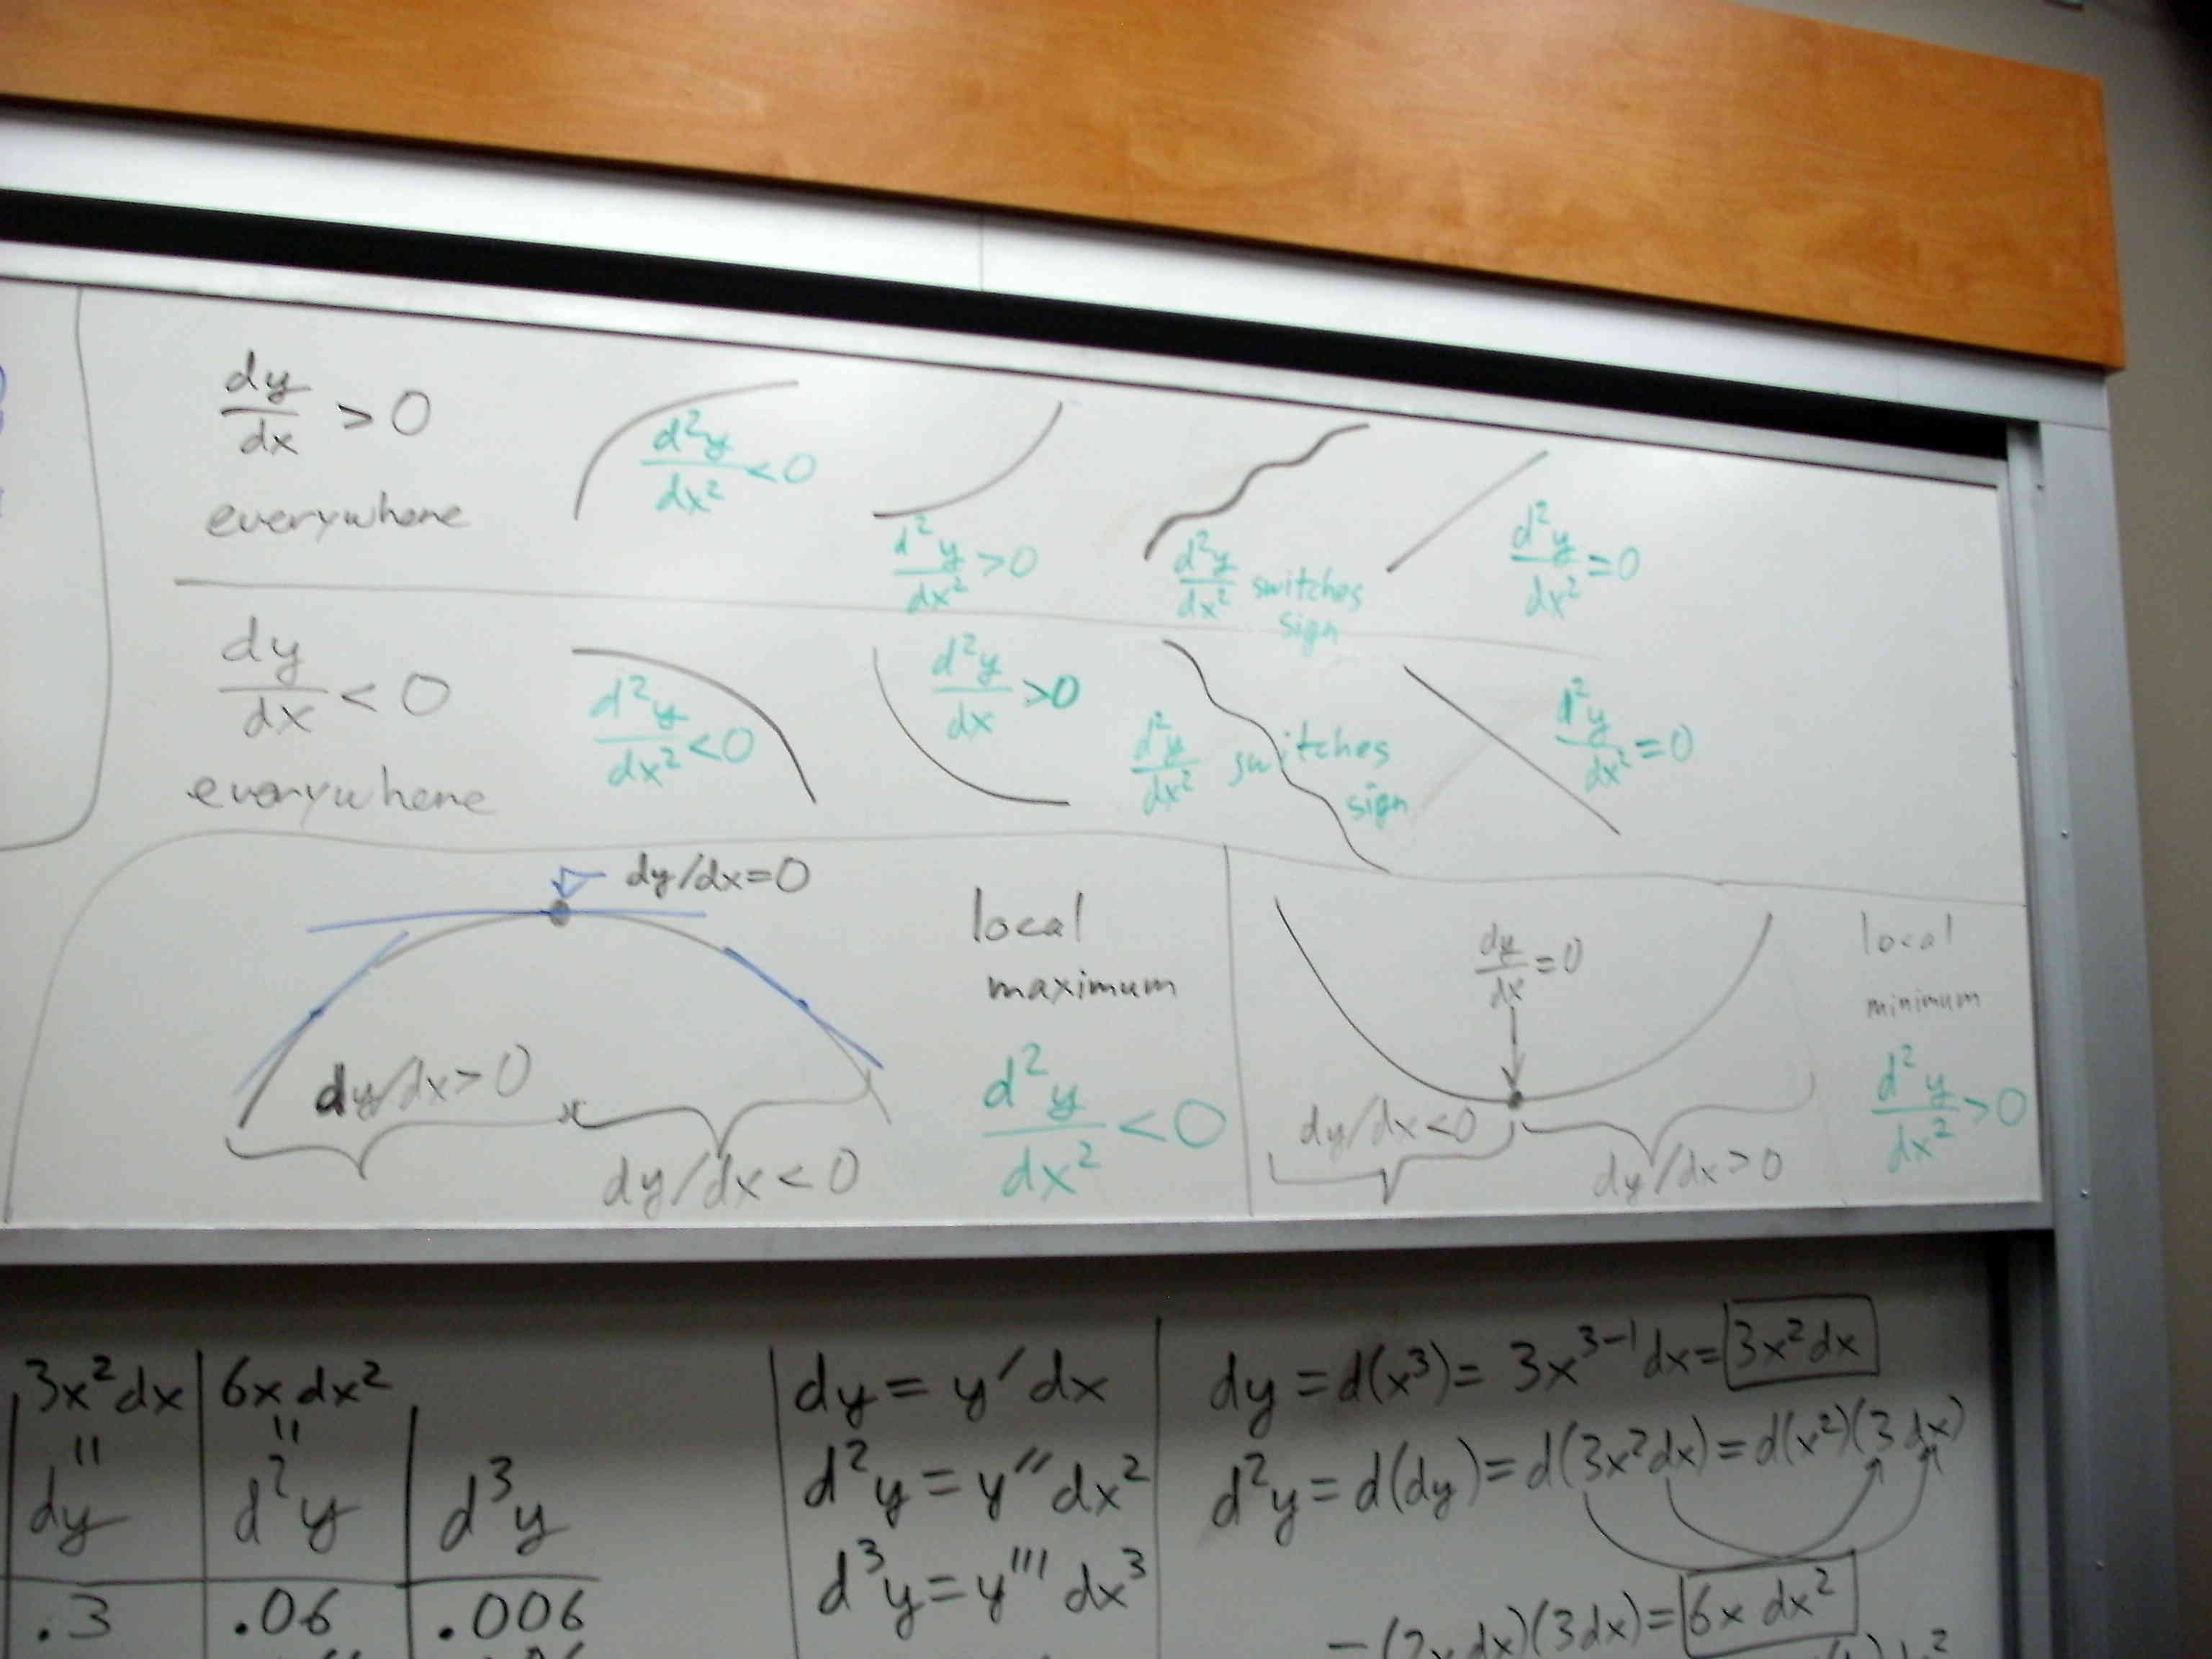 dy/dx > 0
everywhere
d²y/dx² < 0
d²y/dx² > 0
d²y/dx² switches
sign
d²y/dx² = 0
dy/dx < 0
everywhere
d²y/dx² < 0
d²y/dx > 0
d²y/dx² switches
sign
d²y/dx² = 0
dy/dx=0
dy/dx>0
dy/dx<0
local
maximum
d²y/dx² < 0
dy/dx = 0
dy/dx<0
dy/dx>0
local
minimum
d²y/dx² > 0
3x²dx 6x dx²
" "
dy d²y d³y
.3 .06 .006
dy = y′dx
d²y = y″dx²
d³y = y‴dx³
dy = d(x³) = 3x³⁻¹dx = 3x²dx
d²y = d(dy) = d(3x²dx) = d(x²)(3dx)
=(2x dx)(3dx) = 6x dx²